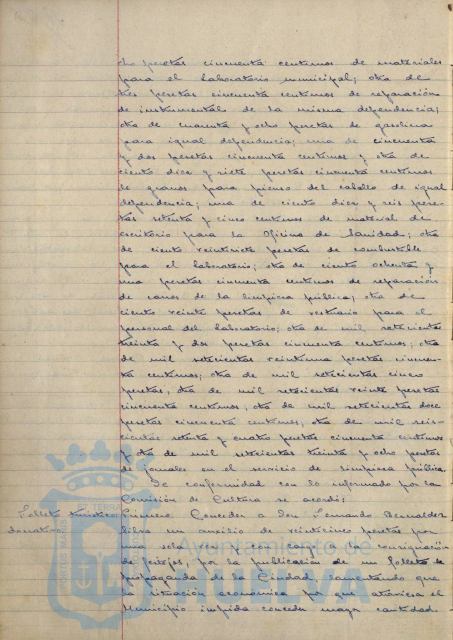 cho pesetas cincuenta centimos de materiales
para el Laboratorio municipal; otra de
tres pesetas cincuenta centimos de reparación
de instrumental de la misma dependencia;
otra de cuarenta y ocho pesetas de gasolina
para igual dependencia; una de cincuenta
y dos pesetas cincuenta centimos y otra de
ciento diez y siete pesetas cincuenta centimos
de granos para pienso del caballo de igual
dependencia; una de ciento diez y seis pese-
tas setenta y cinco centimos de material de
escritorio para la Oficina de Sanidad; otra
de ciento veintisiete pesetas de combustible
para el laboratorio; otra de ciento ochenta y
una pesetas cincuenta centimos de reparación
de carros de la limpieza pública; otra de
ciento veinte pesetas de vestuario para el
personal del laboratorio; otra de mil setecientas
treinta y dos pesetas cincuenta centimos; otra
de mil setecientas veintiuna pesetas cincuen-
ta centimos; otra de mil setecientas cinco
pesetas; otra de mil setecientas veinte pesetas
cincuenta centimos; otra de mil setecientas doce
pesetas cincuenta centimos; otra de mil seis-
cientas setenta y cuatro pesetas cincuenta centimos
y otra de mil setecientas treinta y ocho pesetas
de jornales en el servicio de limpieza pública.
De conformidad con lo informado por la
Comisión de Cultura se acordó:
Folleto turístico
Primero. Conceder a Don Fernando Bermúdez
libre un auxilio de veinticinco pesetas por
una sola vez y con cargo a la consignación
de festejos, por la publicación de un folleto de
propaganda de la Ciudad, lamentando que
la situación económica por que atraviesa el
Municipio impida conceder mayor cantidad.
Ayuntamiento de
HUELVA